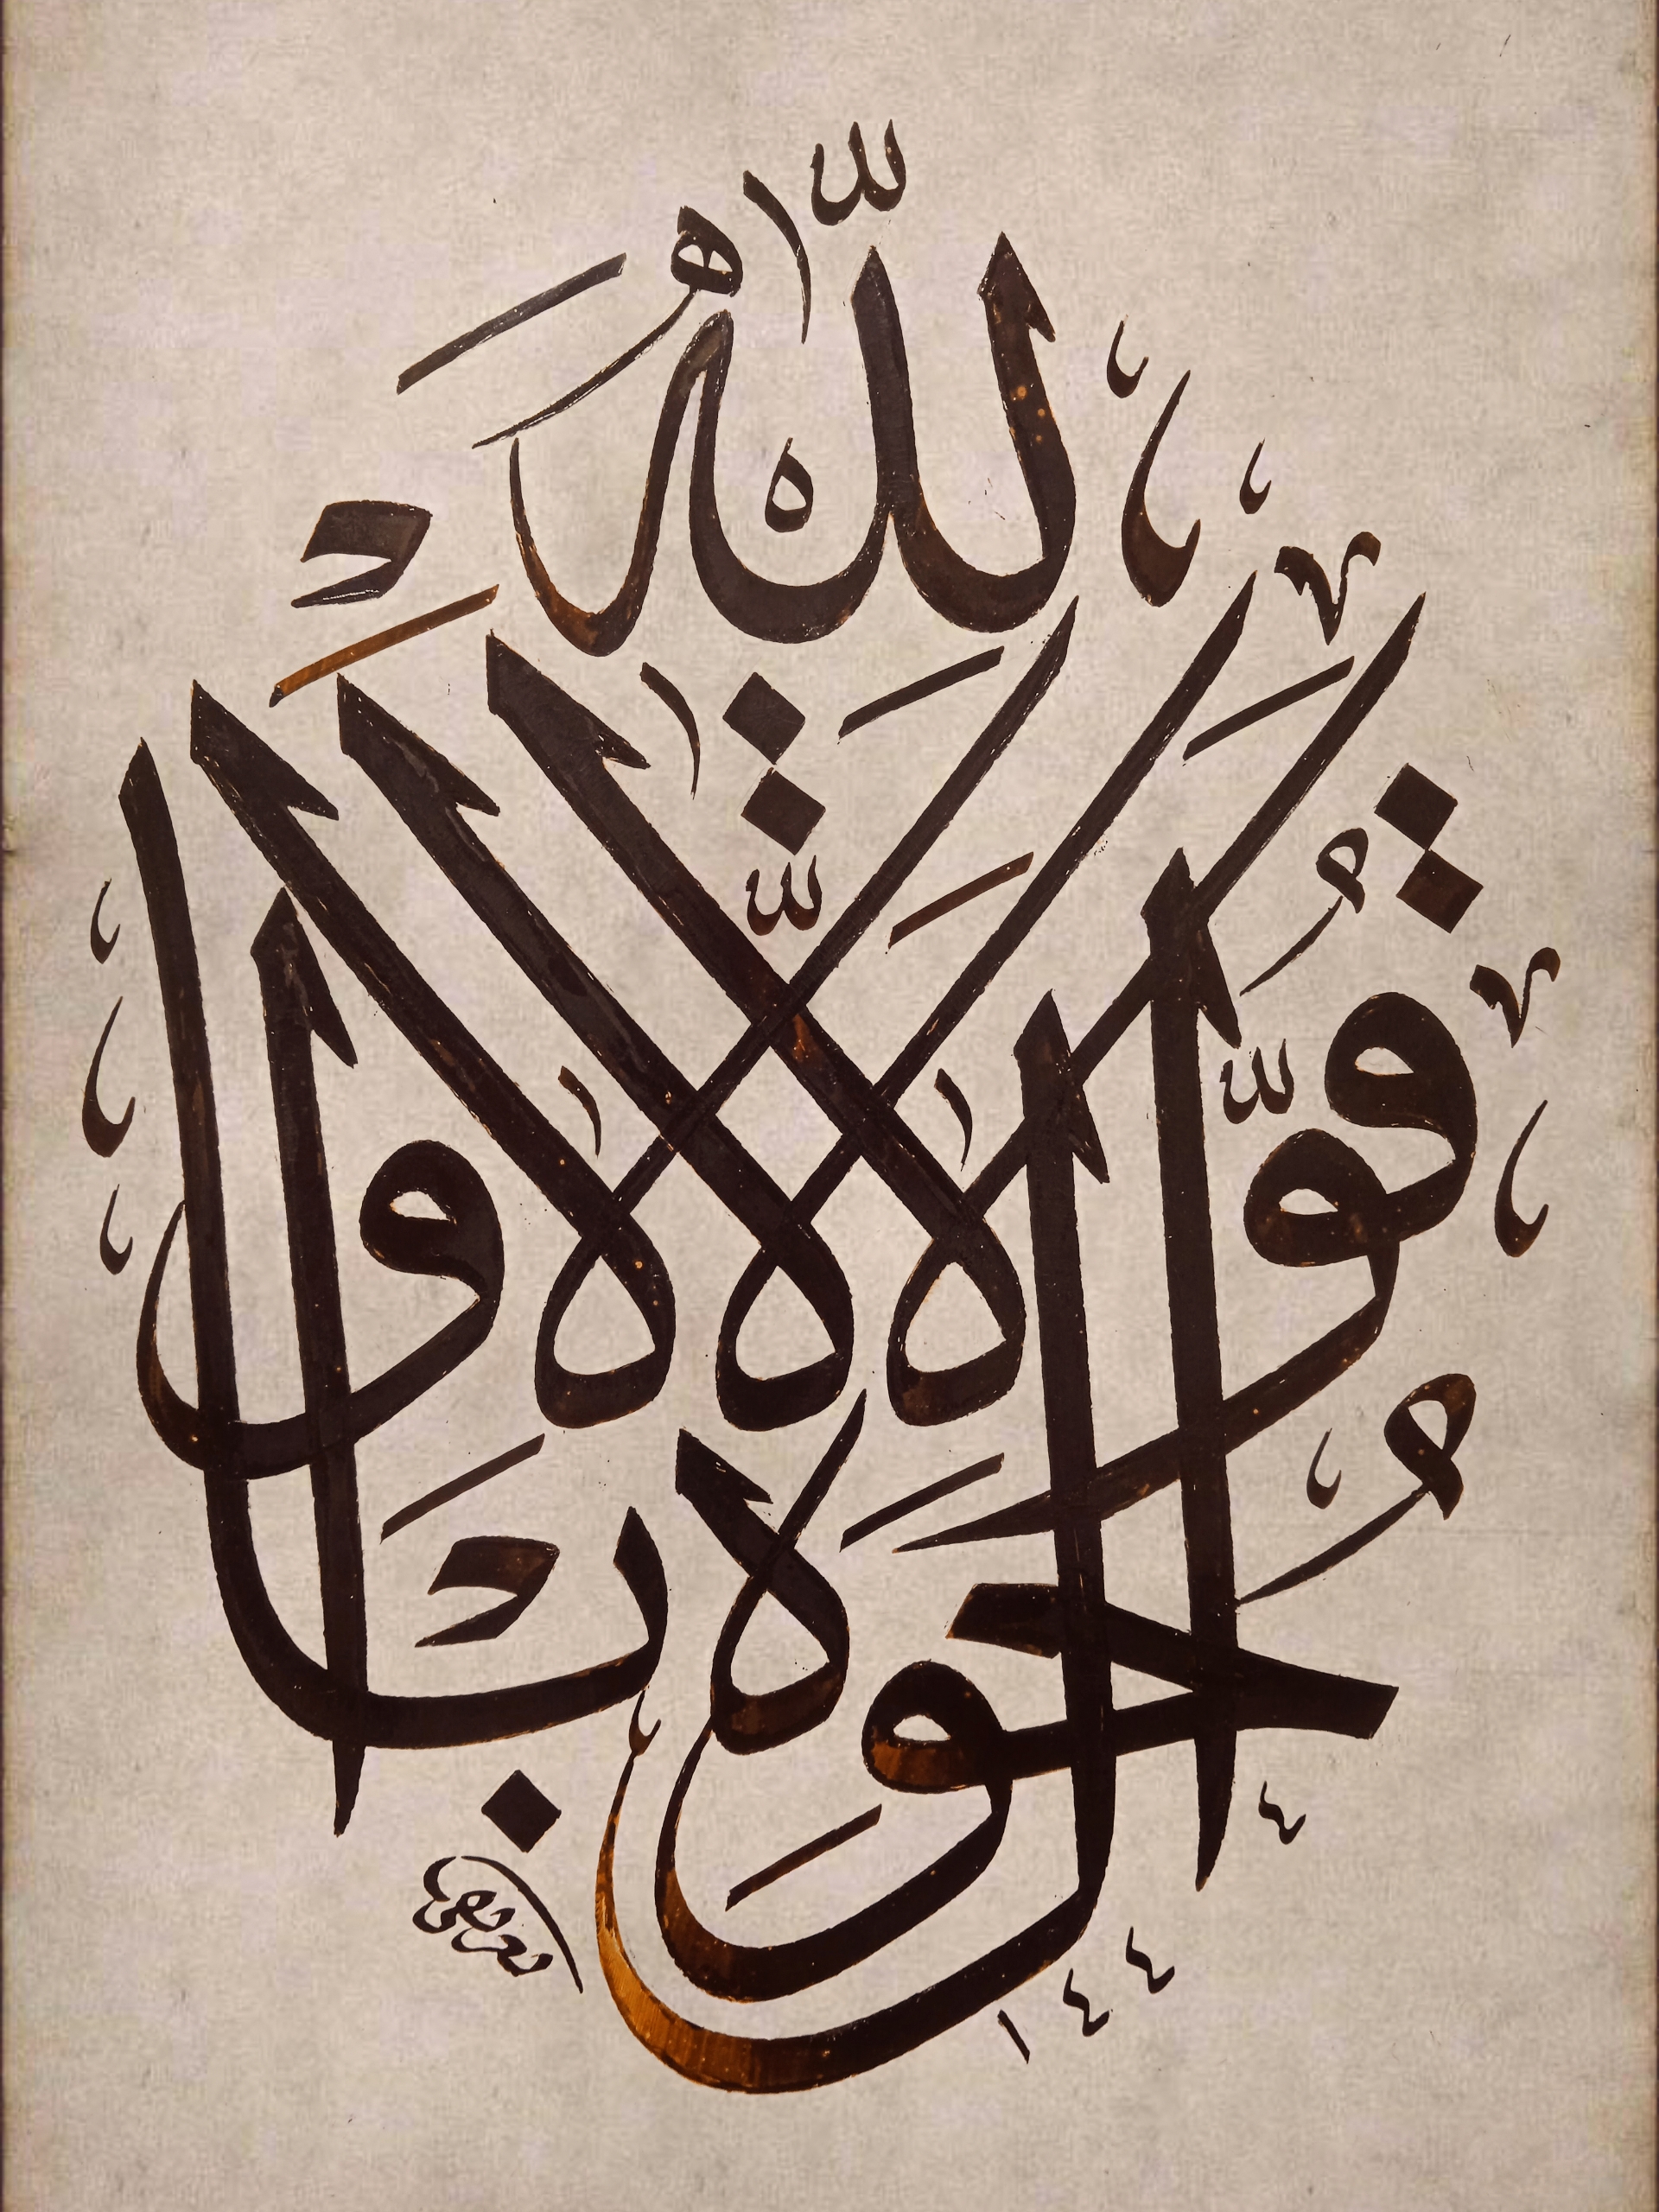 لَا حَوْلَ وَلَا قُوَّةَ إِلَّا بِاللّٰهِ
١٤٤٤